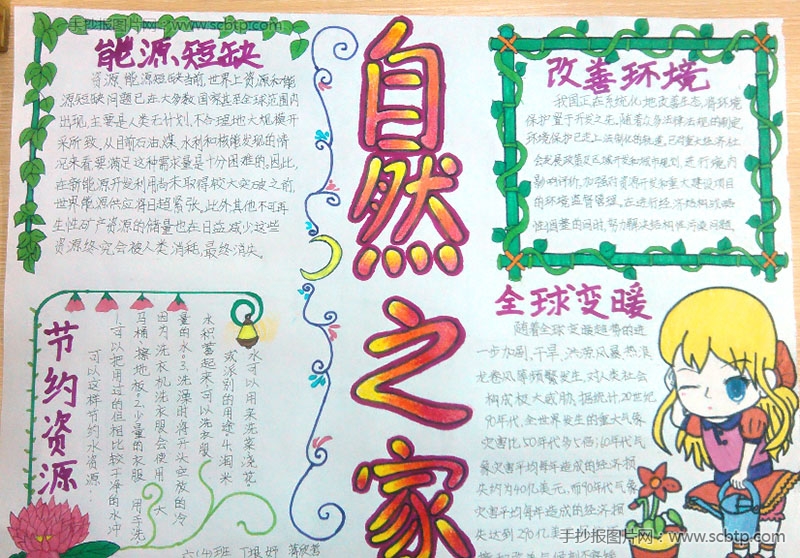 手抄报图片网:www.scbtp.com
能源短缺
资源、能源短缺当前,世界上资源和能
源短缺问题已在大多数国家甚至全球范围内
出现,主要是人类无计划、不合理地大规模开
采所致,从目前石油、煤、水利和核能发现的情
况来看要满足这种需求量是十分困难的。因此,
在新能源开发利用尚未取得较大突破之前,
世界能源供应将日趋紧张,此外其他不可再
生性矿产资源的储量也在日益减少这些
资源终究会被人类消耗,最终消失。
自然之家
改善环境
我国正在系统化地改善生态,将环境
保护置于开发之先,随着众多法律法规的制定,
环境保护已走上法制化的轨道,已对重大经济、社
会发展政策及区域开发和城市规划,进行境内
影响评析,加强对资源开发和重大建设项目
的环境监督管理,在进行经济结构战略
性调整的同时,努力解决结构性污染问题.
节约资源
可以这样节约水资源:
1.可以把用过的但相比较干净的水冲
马桶、擦地板。2.少量的衣服 用手洗
因为洗衣机洗衣服会使用 大
量的水。3.洗澡时将开头空放的冷
水积蓄起来可以洗衣服
或派别的用途.4.淘米
水可以用来洗菜、浇花
六(4)班
全球变暖
随着全球变暖趋势的进
一步加剧,干旱、洪涝、风暴、热浪、
龙卷风等频繁发生,对人类社会
构成极大威胁,据统计,20世纪
90年代,全世界发生的重大气象
灾害比50年代多七倍;60年代气
象灾害平均每年造成的经济损
失约为40亿美元,而90年代气象
灾害平均每年造成的经济损
失达到290亿美
手抄报图片网:www.scbtp.com